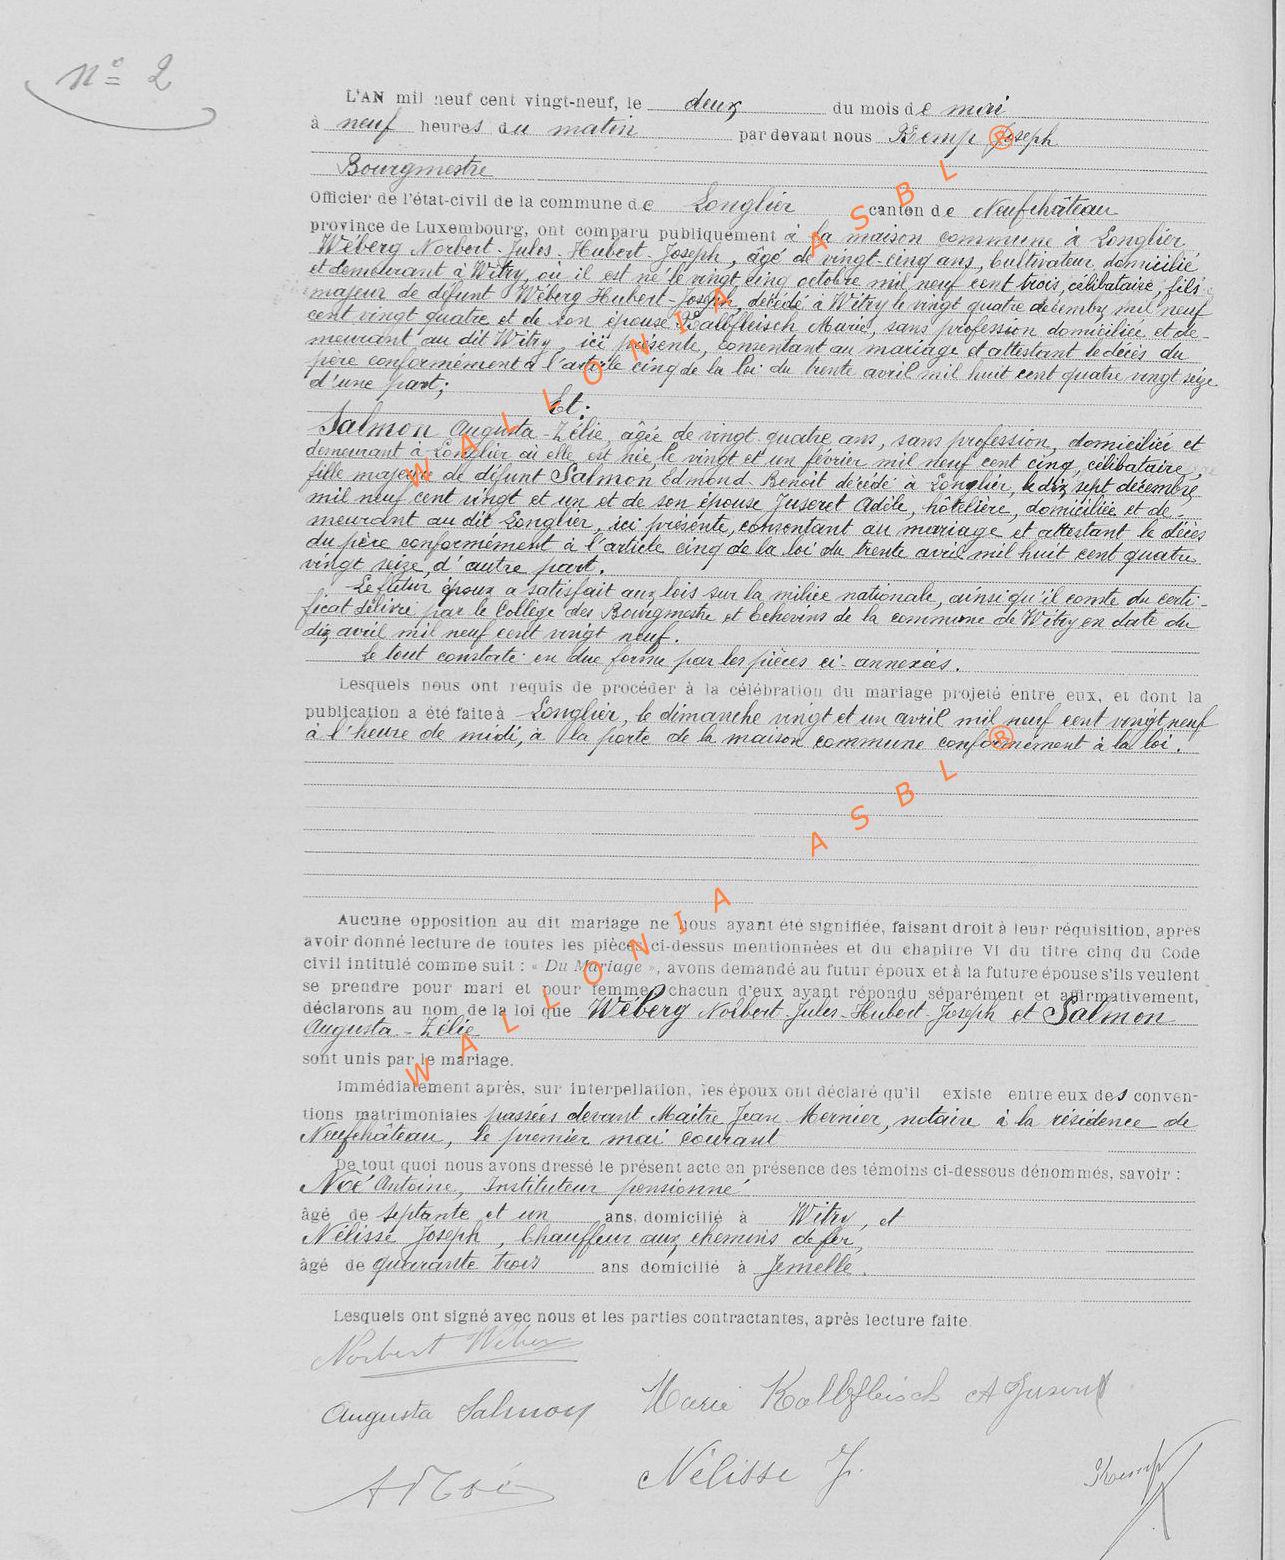 n° 2
L'AN mil neuf cent vingt-neuf, le deux du mois de mai
à neuf heures du matin par devant nous Kemp Joseph
Bourgmestre
Officier de l'état-civil de la commune de Longlier canton de Neufchâteau
province de Luxembourg, ont comparu publiquement à la maison commune à Longlier
Wéberg Norbert-Jules-Hubert-Joseph, âgé de vingt-cinq ans, Cultivateur domicilié
et demeurant à Witry où il est né le vingt cinq octobre mil neuf cent trois, célibataire, fils
majeur de défunt Wéberg Hubert-Joseph, décédé à Witry le vingt quatre décembre mil neuf
cent vingt quatre et de son épouse Kalbfleisch Marie, sans profession domiciliée et de-
meurant au dit Witry, ici présente, consentant au mariage et attestant le décès du
père conformément à l'article cinq de la loi du trente avril mil huit cent quatre vingt seize
d'une part;
Et:
Salmon Augusta-Zélie, âgée de vingt quatre ans, sans profession, domiciliée et
demeurant à Longlier où elle est née, le vingt et un février mil neuf cent cinq, célibataire,
fille majeure de défunt Salmon Edmond-Benoit décédé à Longlier, le dix sept décembre
mil neuf cent vingt et un et de son épouse Juseret Adèle, hôtelière, domiciliée et de-
meurant au dit Longlier, ici présente, consentant au mariage et attestant le décès
du père conformément à l'article cinq de la loi du trente avril mil huit cent quatre
vingt seize, d'autre part.
Le futur époux a satisfait aux lois sur la milice nationale, ainsi qu'il conste du certi-
ficat délivré par le Collège des Bourgmestre et Echevins de la commune de Witry en date du
dix avril mil neuf cent vingt neuf.
Le tout constaté en due forme par les pièces ci-annexées.
Lesquels nous ont requis de procéder à la célébration du mariage projeté entre eux, et dont la
publication a été faite à Longlier, le dimanche vingt et un avril mil neuf cent vingt neuf
à l'heure de midi, à la porte de la maison commune conformément à la loi.
Aucune opposition au dit mariage ne nous ayant été signifiée, faisant droit à leur réquisition, après
avoir donné lecture de toutes les pièces ci-dessus mentionnées et du chapitre VI du titre cinq du Code
civil intitulé comme suit : « Du Mariage », avons demandé au futur époux et à la future épouse s'ils veulent
se prendre pour mari et pour femme; chacun d'eux ayant répondu séparément et affirmativement,
déclarons au nom de la loi que Wéberg Norbert-Jules-Hubert-Joseph et Salmon
Augusta-Zélie
sont unis par le mariage.
Immédiatement après, sur interpellation, les époux ont déclaré qu'il existe entre eux des conven-
tions matrimoniales passées devant Maître Jean Mernier, notaire à la résidence de
Neufchâteau, le premier mai courant
De tout quoi nous avons dressé le présent acte en présence des témoins ci-dessous dénommés, savoir :
Noé Antoine, Instituteur pensionné
âgé de septante et un ans, domicilié à Witry, et
Nélisse Joseph, Chauffeur aux chemins de fer,
âgé de quarante trois ans domicilié à Jemelle.
Lesquels ont signé avec nous et les parties contractantes, après lecture faite
Norbert Weberg
Augusta Salmon Marie Kalbfleisch A Juseret
A Noé Nélisse J. Kemp
WALLONIA ASBL ®
WALLONIA ASBL ®